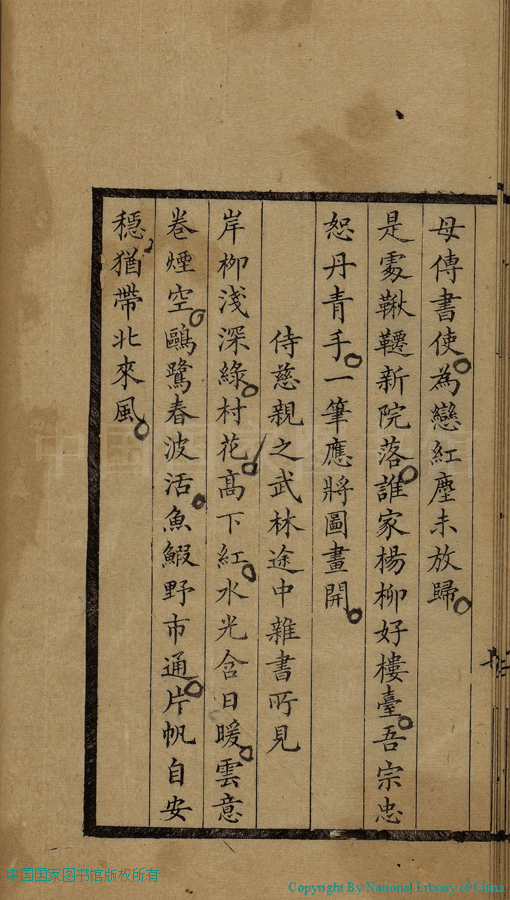 母傳書使為戀紅塵未放歸
是處鞦韆新院落誰家楊柳好樓臺吾宗忠
恕丹青手一筆應將圖畫開
侍慈親之武林途中雜書所見
岸柳淺深綠村花高下紅水光含日暖雲意
卷煙空鷗鷺春波活魚鰕野市通片帆自安
穩猶帶北來風
中国国家图书馆版权所有
Copyright By National Library of China